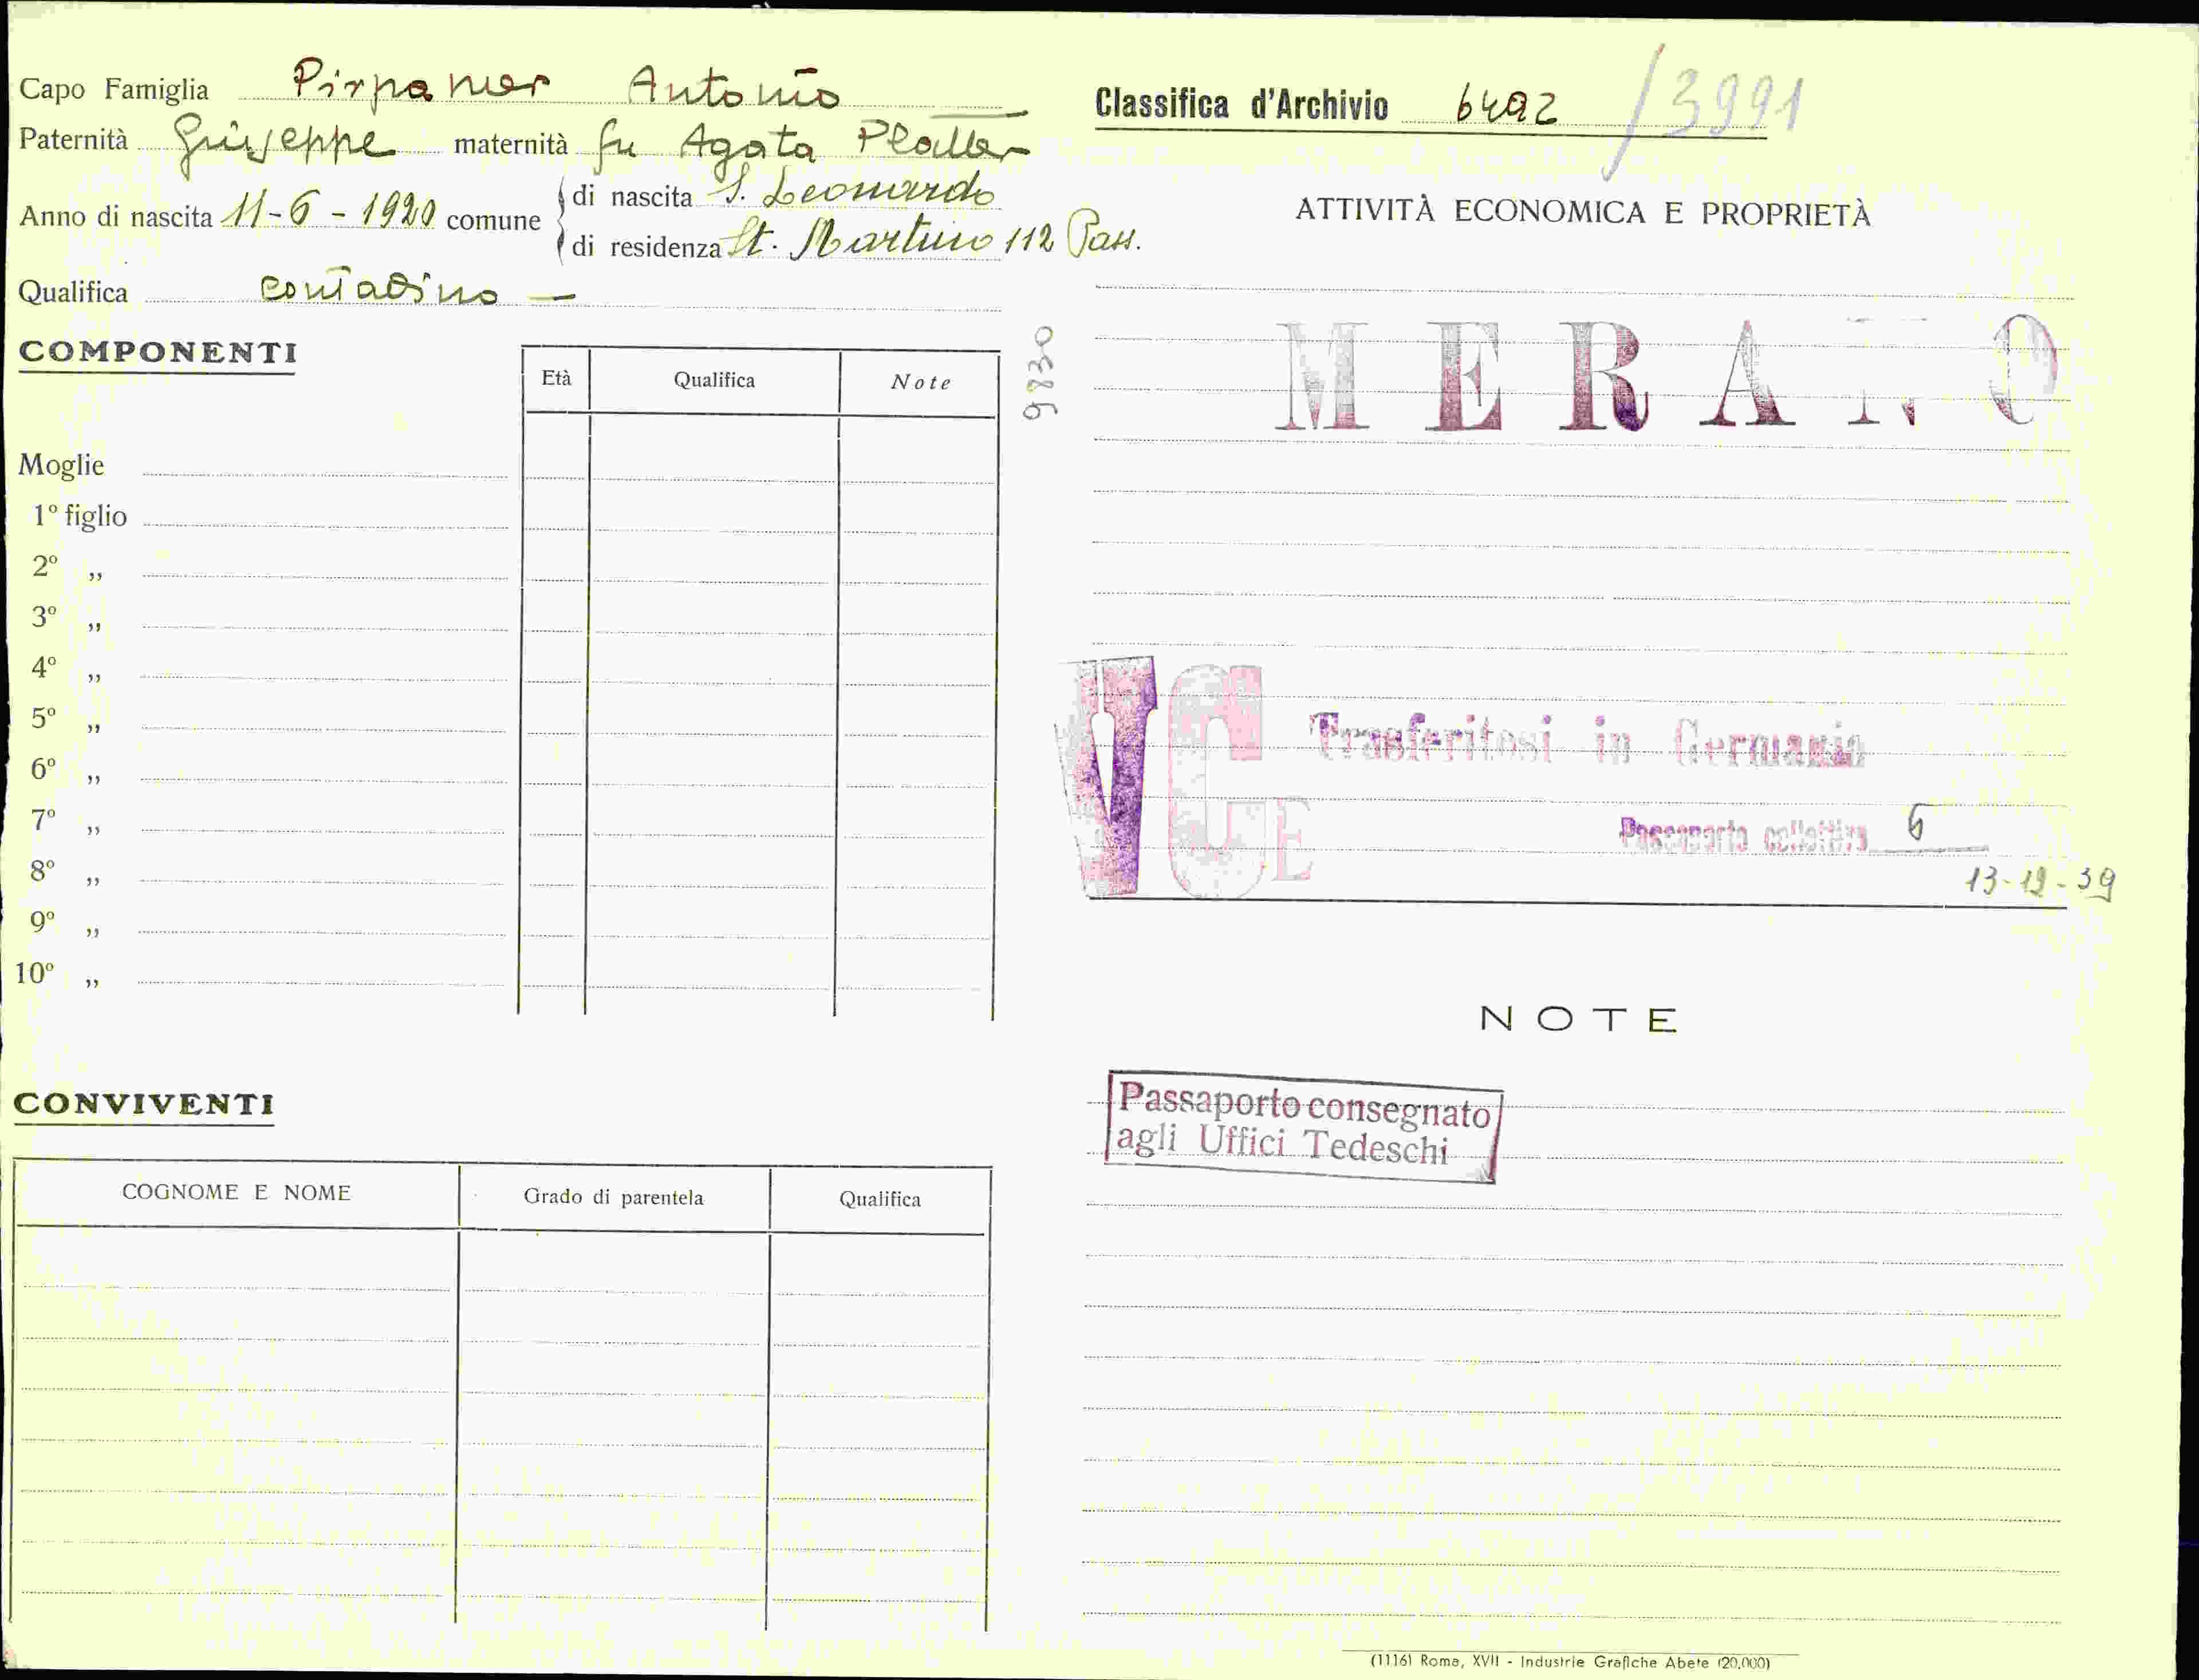 Capo Famiglia Pirpamer Antonio
Paternità Giuseppe maternità fu Agata Platter
Anno di nascita 11-6-1920 comune
di nascita S. Leonardo
di residenza St. Martino 112 Pass.
Qualifica contadino —
COMPONENTI
Età Qualifica Note
Moglie
1º figlio
2º ,,
3º ,,
4º ,,
5º ,,
6º ,,
7º ,,
8º ,,
9º ,,
10º ,,
CONVIVENTI
COGNOME E NOME Grado di parentela Qualifica
9830
Classifica d'Archivio 6492 /3991
ATTIVITÀ ECONOMICA E PROPRIETÀ
MERANO
VCE
Trasferitosi in Germania
Passaporto collettivo 6
13-12-39
NOTE
Passaporto consegnato
agli Uffici Tedeschi
(1116) Roma, XVII - Industrie Grafiche Abete (20.000)